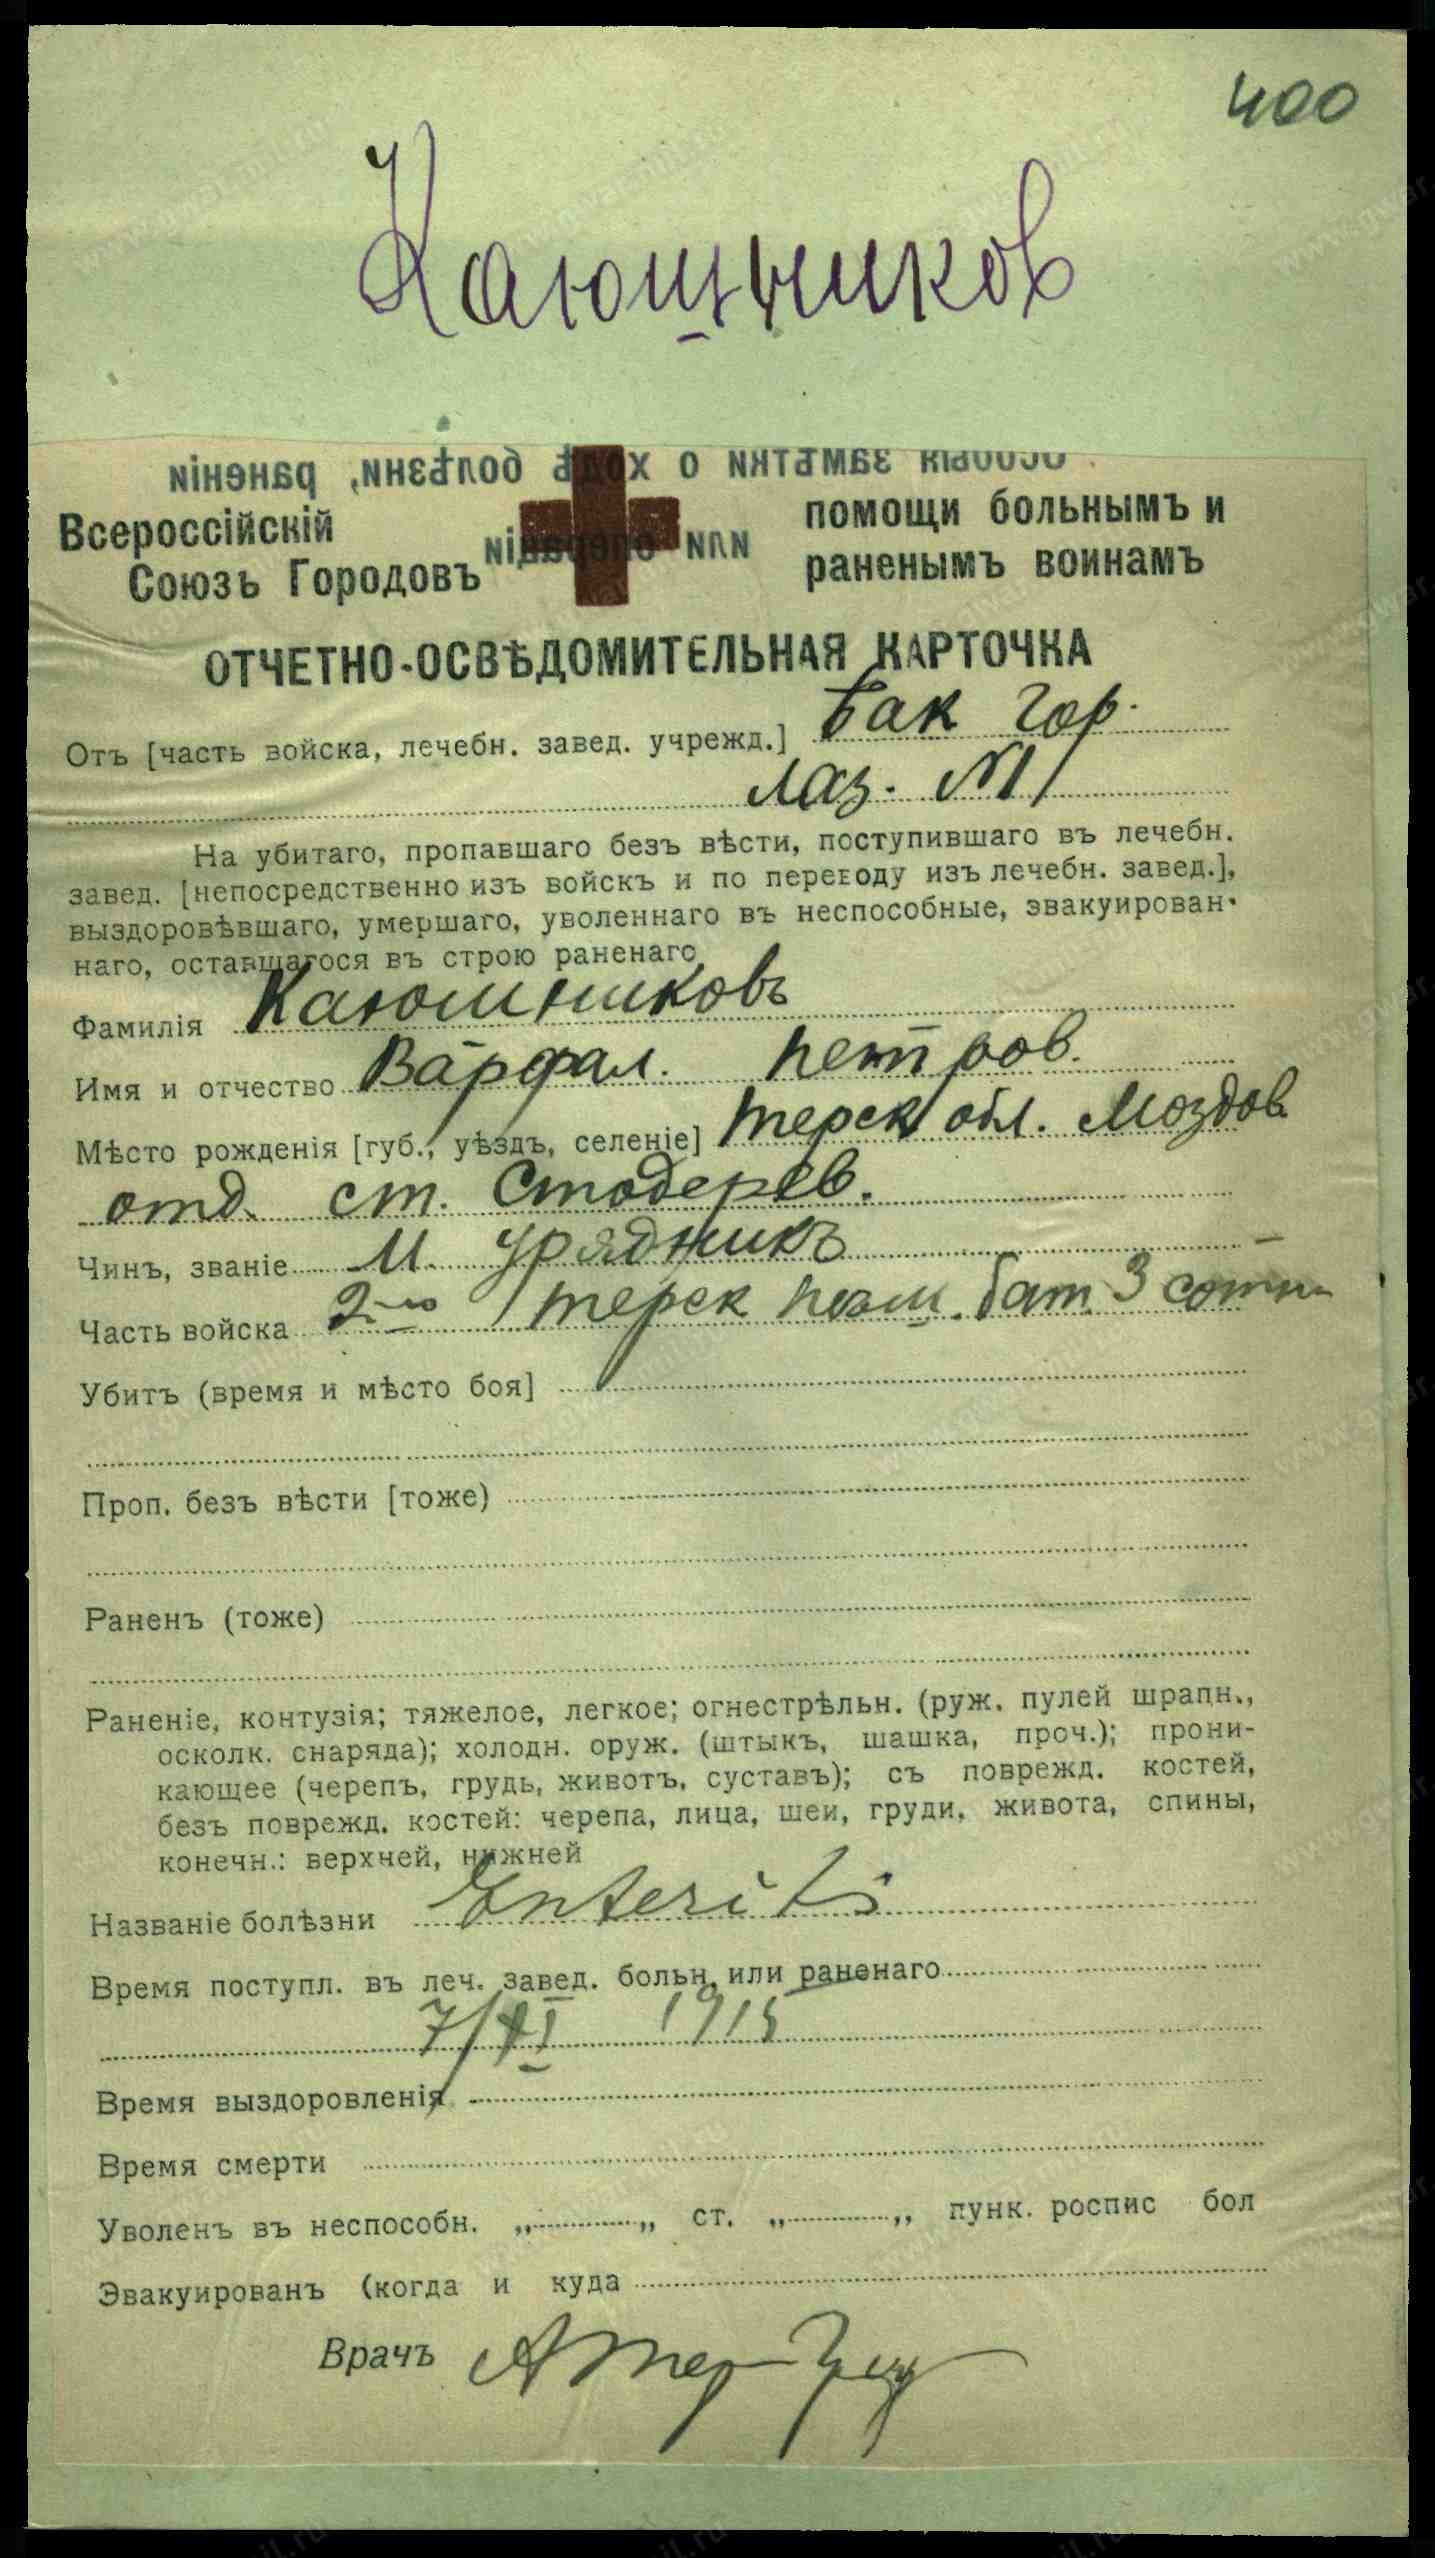 400
Каюшников
Особыя замѣтки о ходѣ болѣзни, раненія
или операціи
Всероссійскій
Союзъ Городовъ
помощи больнымъ и
раненымъ воинамъ
ОТЧЕТНО-ОСВѢДОМИТЕЛЬНАЯ КАРТОЧКА
Отъ [часть войска, лечебн. завед. учрежд.] Бак гор.
Лаз. №1
На убитаго, пропавшаго безъ вѣсти, поступившаго въ лечебн.
завед. [непосредственно изъ войскъ и по переводу изъ лечебн. завед.],
выздоровѣвшаго, умершаго, уволеннаго въ неспособные, эвакуирован-
наго, оставшагося въ строю раненаго
Фамилія Каюшниковъ
Имя и отчество Варфал. Петров.
Мѣсто рожденія [губ., уѣздъ, селеніе] Терск обл. Моздов
отд. ст. Стодерев.
Чинъ, званіе М. Урядникъ
Часть войска 2-ю Терск пласт. бат. 3 сотни
Убитъ (время и мѣсто боя]
Проп. безъ вѣсти [тоже)
Раненъ (тоже)
Раненіе, контузія; тяжелое, легкое; огнестрѣльн. (руж. пулей шрапн.,
осколк. снаряда); холодн. оруж. (штыкъ, шашка, проч.); прони-
кающее (черепъ, грудь, животъ, суставъ); съ поврежд. костей,
безъ поврежд. костей: черепа, лица, шеи, груди, живота, спины,
конечн.: верхней, нижней
Названіе болѣзни Enteritis
Время поступл. въ леч. завед. больн. или раненаго
7/XI 1915
Время выздоровленія
Время смерти
Уволенъ въ неспособн. „ „ ст. „ „ пунк. роспис бол
Эвакуированъ (когда и куда
Врачъ